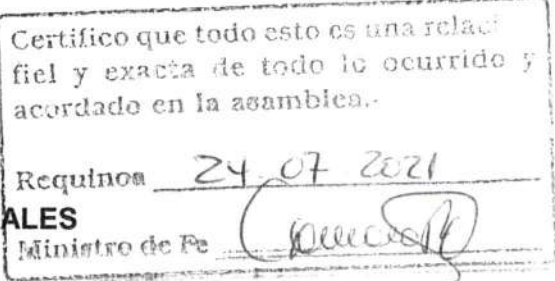 Certifico que todo esto es una relaci
fiel y exacta de todo lo ocurrido y
acordado en la asamblea.-
Requinoa 24 07 2021
ALES
Ministro de Fe